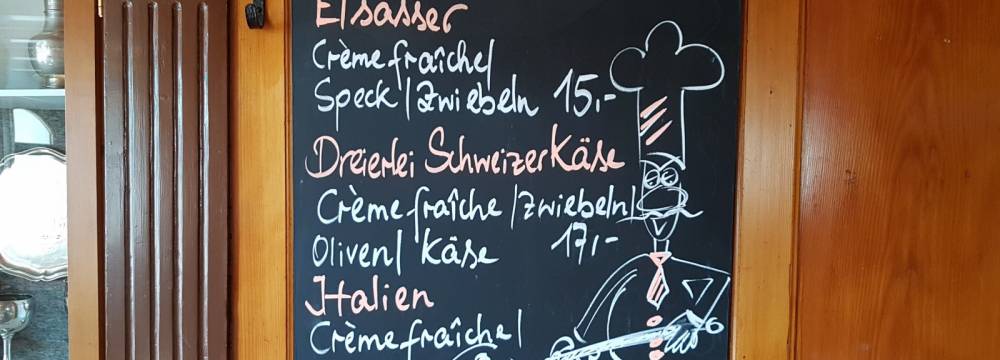 Elsässer
Crème fraîche/
Speck/Zwiebeln 15,-
Dreierlei Schweizer Käse
Crème fraîche/Zwiebeln/
Oliven/Käse 17,-
Italien
Crème fraîche/